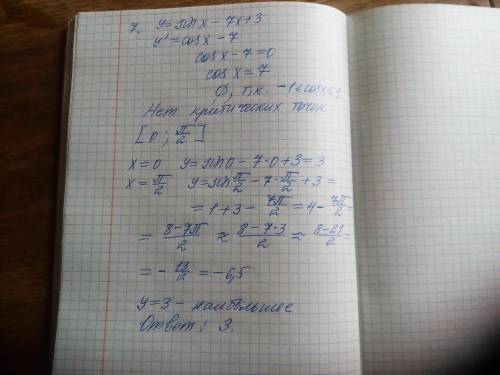 7. y=sinx-7x+3
y'=cosx-7
cosx-7=0
cosx=7
∅, т.к. -1≤cosx≤1
Нет критических точек
[0; π/2]
x=0 y=sin0-7·0+3=3
x=π/2 y=sin π/2-7·π/2+3=
=1+3-7π/2=4-7π/2=
=(8-7π)/2≈(8-7·3)/2≈(8-21)/2=
=-13/2=-6,5
y=3-наибольшее
Ответ: 3.